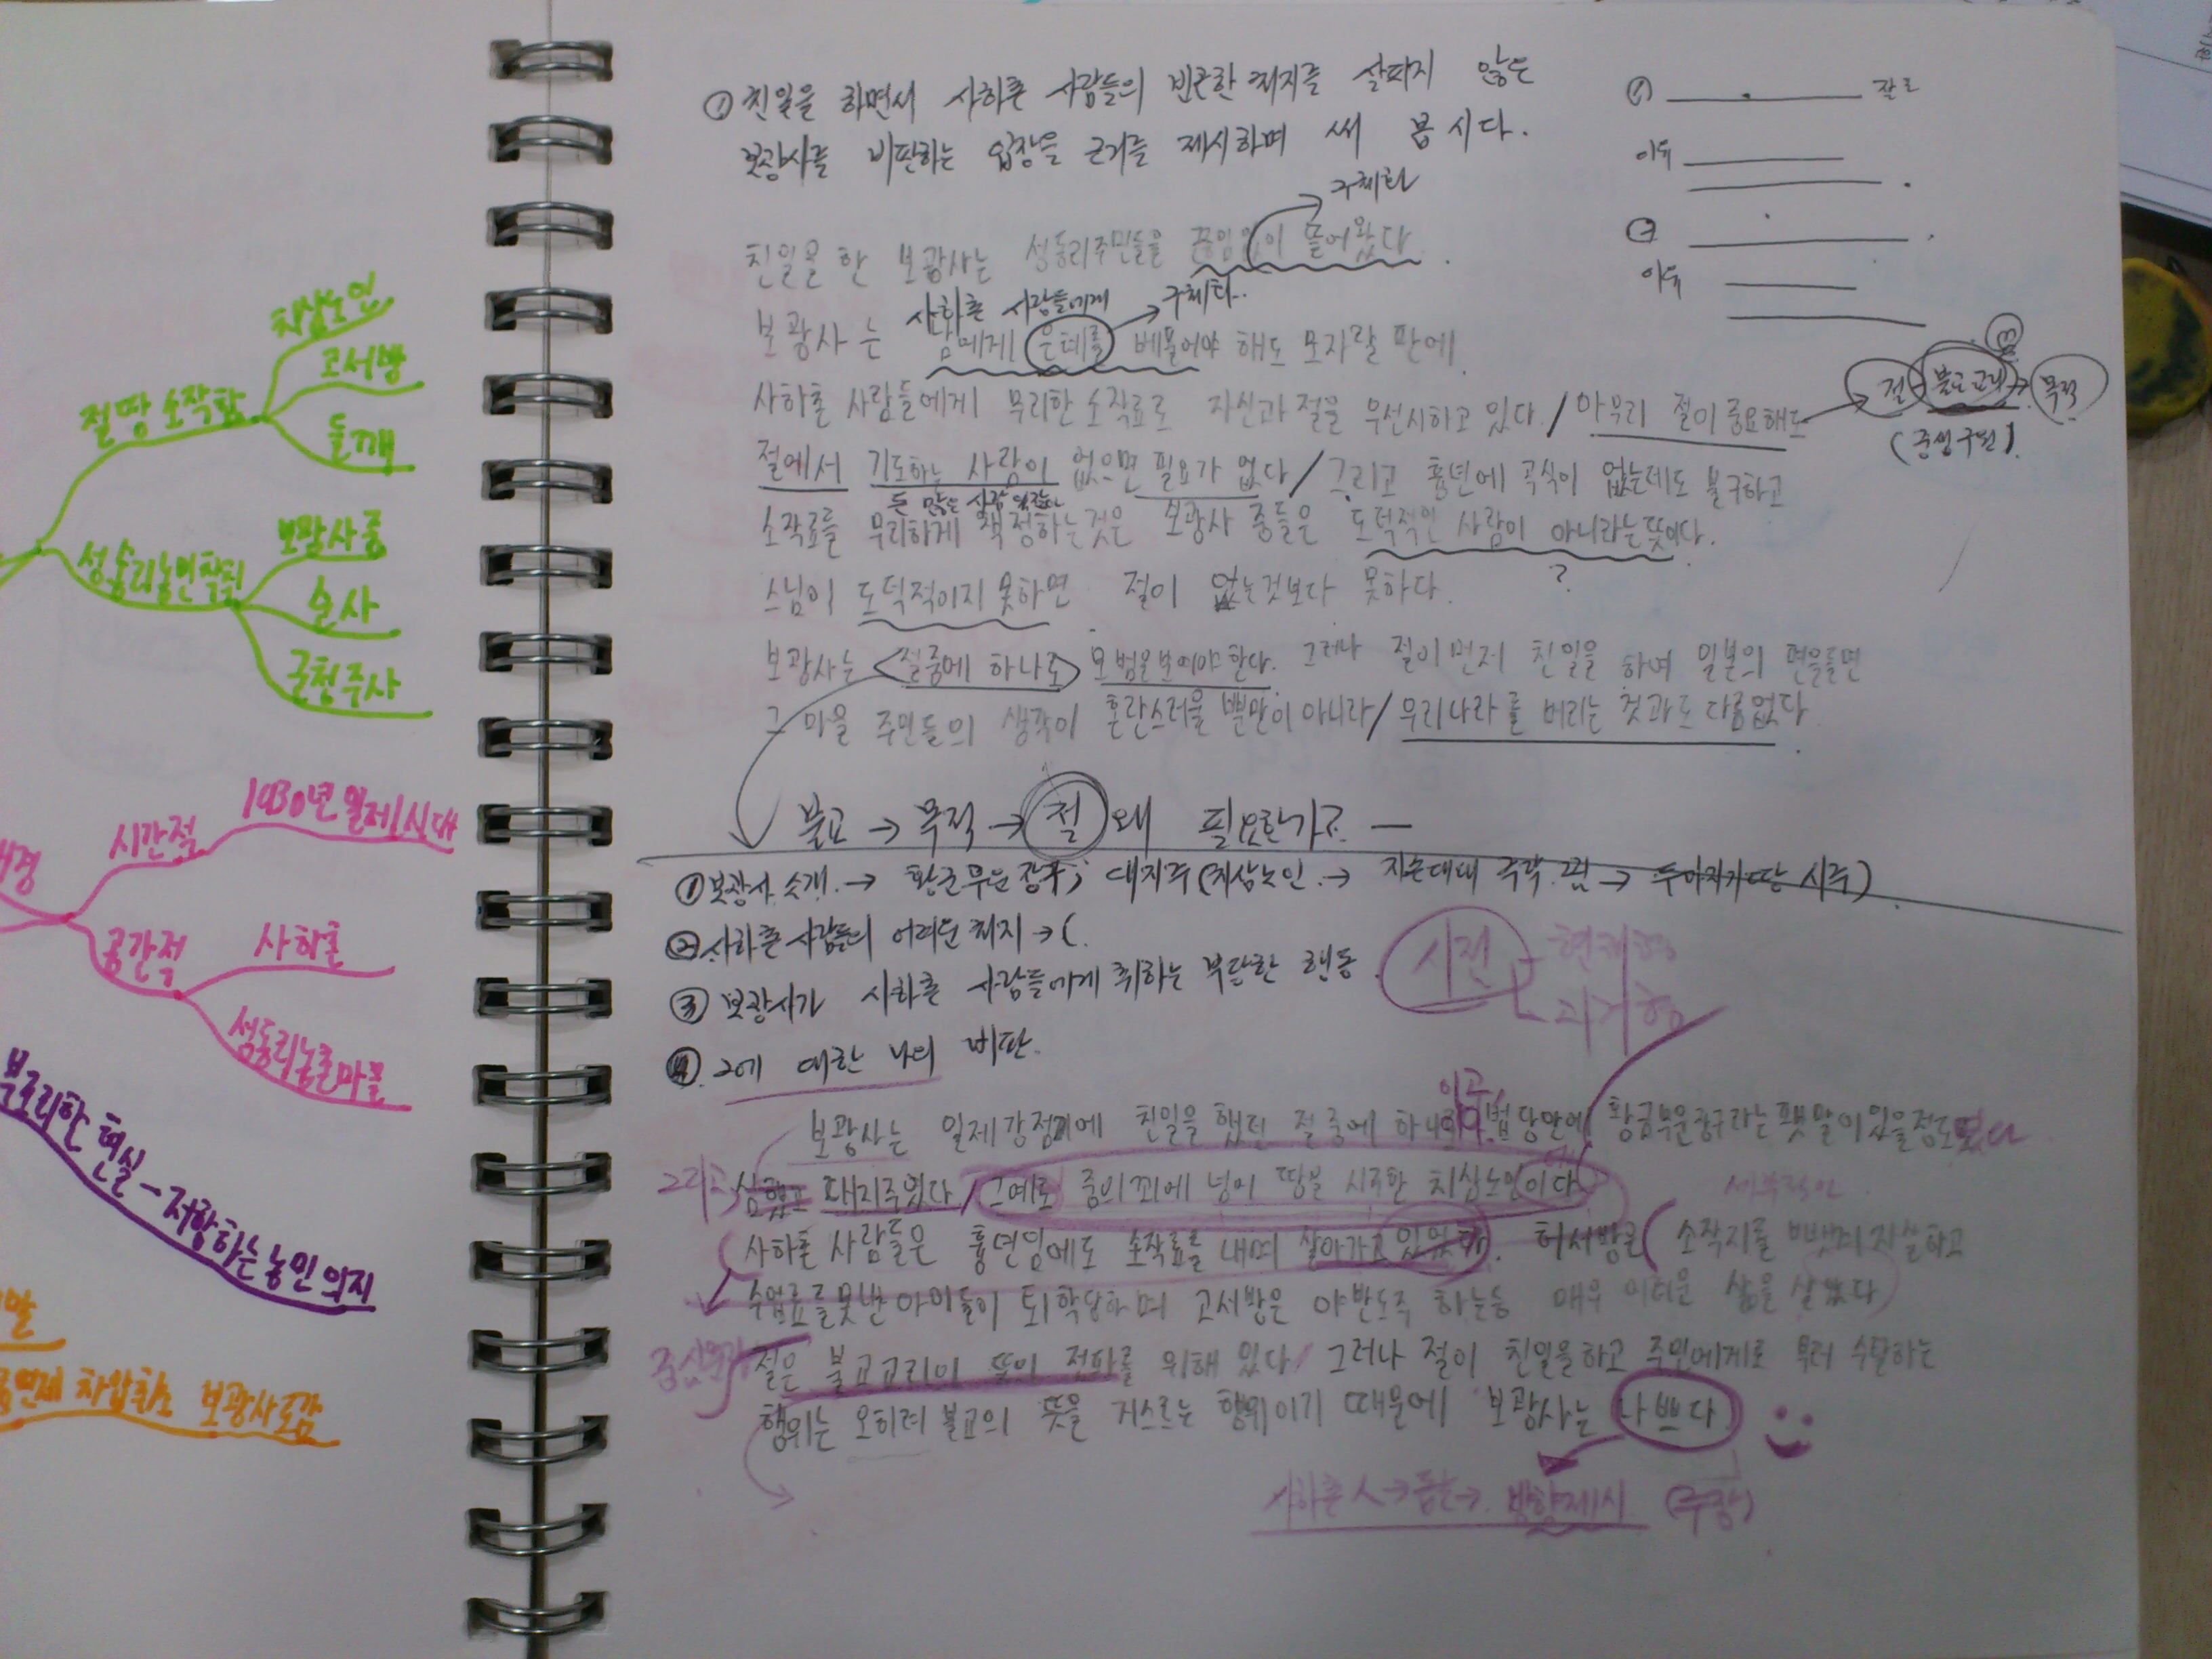 치삼노인
고서방
절땅 소작함
들깨
보광사 중
순사
군청주사
시간적
1930년 일제시대
공간적
사하촌
성동리농촌마을
부조리한 현실 - 저항하는 농민 의지
차압취소 보광사로감
① 친일을 하면서 사하촌 사람들의 빈곤한 처지를 살피지 않은
보광사를 비판하는 입장을 근거를 제시하며 써 봅시다.
구체화
친일을 한 보광사는 성동리주민들을 끊임없이 뜯어왔다.
사하촌 사람들에게 구체화.
보광사는 남에게 은혜를 베풀어야 해도 모자랄 판에
사하촌 사람들에게 무리한 소작료로 자신과 절을 우선시하고 있다. / 아무리 절이 중요해도
절에서 기도하는 사람이 없으면 필요가 없다 / 그리고 흉년에 곡식이 없는데도 불구하고
소작료를 무리하게 책정하는것은 보광사 중들은 도덕적인 사람이 아니라는뜻이다.
?
스님이 도덕적이지 못하면 절이 없는것보다 못하다.
보광사는 절중에 하나로 모범을보여야한다. 그러나 절이먼저 친일을 하며 일본의 편을들면
그 마을 주민들의 생각이 혼란스러울 뿐만이 아니라 / 우리나라를 버리는 것과도 다름없다.
① 잘로
이유
②
이유
③
절 불교 교리 → 목적
(중생구원).
불교 → 목적 → 절 왜 필요한가? —
① 보광사 소개. → 황군무운장구; 대지주 (치삼노인 → 자손대대 극락 → 두마지기땅 시주)
② 사하촌 사람들의 어려운 처지 → (
③ 보광사가 사하촌 사람들에게 취하는 부당한 행동.
④. 그에 대한 나의 비판.
시전 - 현재형
과거형
이고
보광사는 일제강점기에 친일을 했던 절 중에 법당안에 황금무운장구라는 팻말이 있을정도
그리고 대지주였다 / 그예로 중의꾀에 넘어 땅을 시주한 치삼노인이다
세부적인
사하촌 사람들은 흉년임에도 소작료를 내며 살아가고 있었다. 허서방은 소작지를 뺏겨자살하고
수업료를못낸아이들이 퇴학당하며 고서방은 야반도주 하는등 매우 어려운 삶을 살았다
중심문장
절은 불교교리의 뜻의 전파를 위해 있다 / 그러나 절이 친일을하고 주민에게로 부터 수탈하는
행위는 오히려 불교의 뜻을 거스르는 행위이기 때문에 보광사는 나쁘다.
사하촌 人 → 돕는 → 방향제시 (주장)